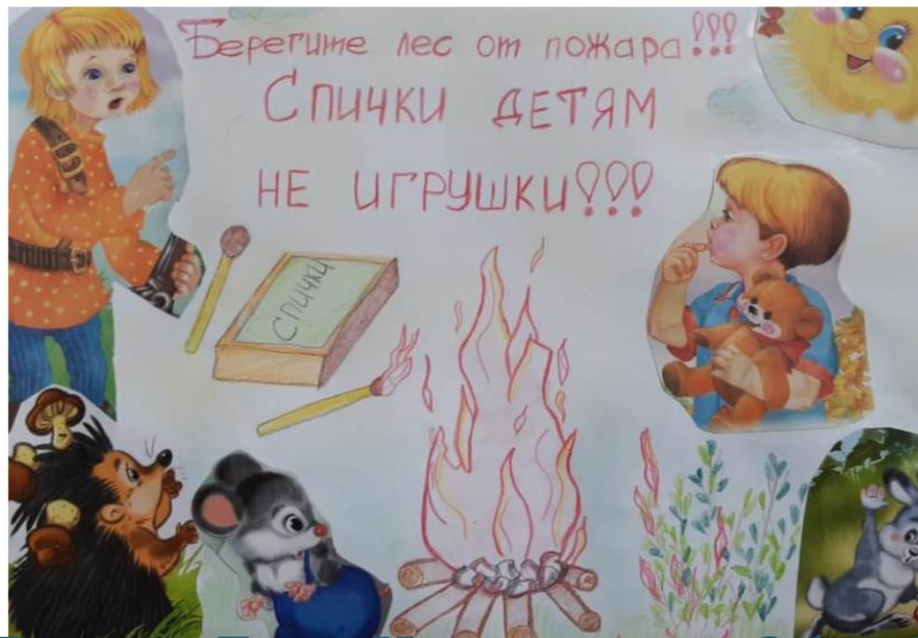 Берегите лес от пожара!!!
Спички детям
не игрушки!!!
Спички